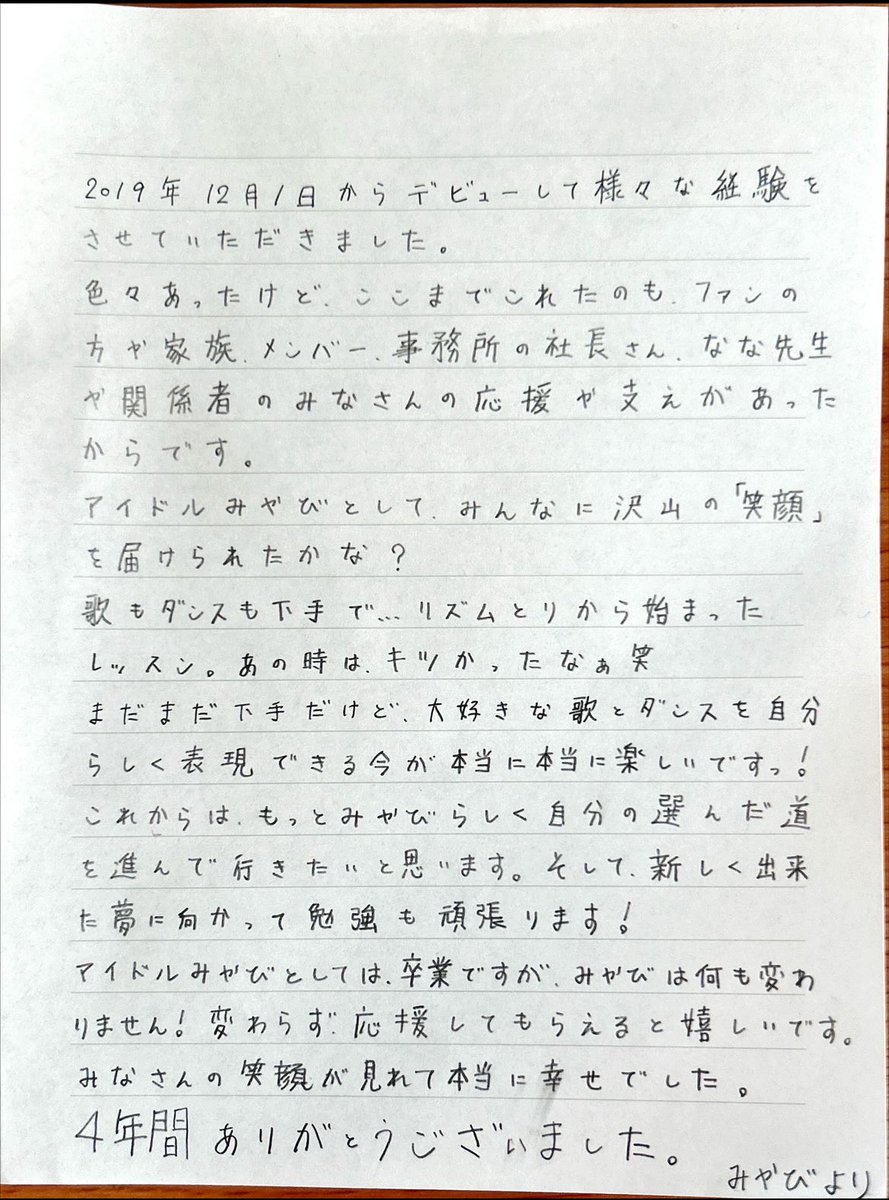 2019年12月1日からデビューして様々な経験を
させていただきました。
色々あったけど、ここまでこれたのも、ファンの
方や家族、メンバー、事務所の社長さん、なな先生
や関係者のみなさんの応援や支えがあった
からです。
アイドルみやびとして、みんなに沢山の「笑顔」
を届けられたかな？
歌もダンスも下手で…リズムとりから始まった
レッスン。あの時は、キツかったなぁ笑
まだまだ下手だけど、大好きな歌とダンスを自分
らしく表現できる今が本当に本当に楽しいですっ！
これからは、もっとみやびらしく自分の選んだ道
を進んで行きたいと思います。そして、新しく出来
た夢に向かって勉強も頑張ります！
アイドルみやびとしては、卒業ですが、みやびは何も変わ
りません！変わらず、応援してもらえると嬉しいです。
みなさんの笑顔が見れて本当に幸せでした。
4年間ありがとうございました。
みやびより